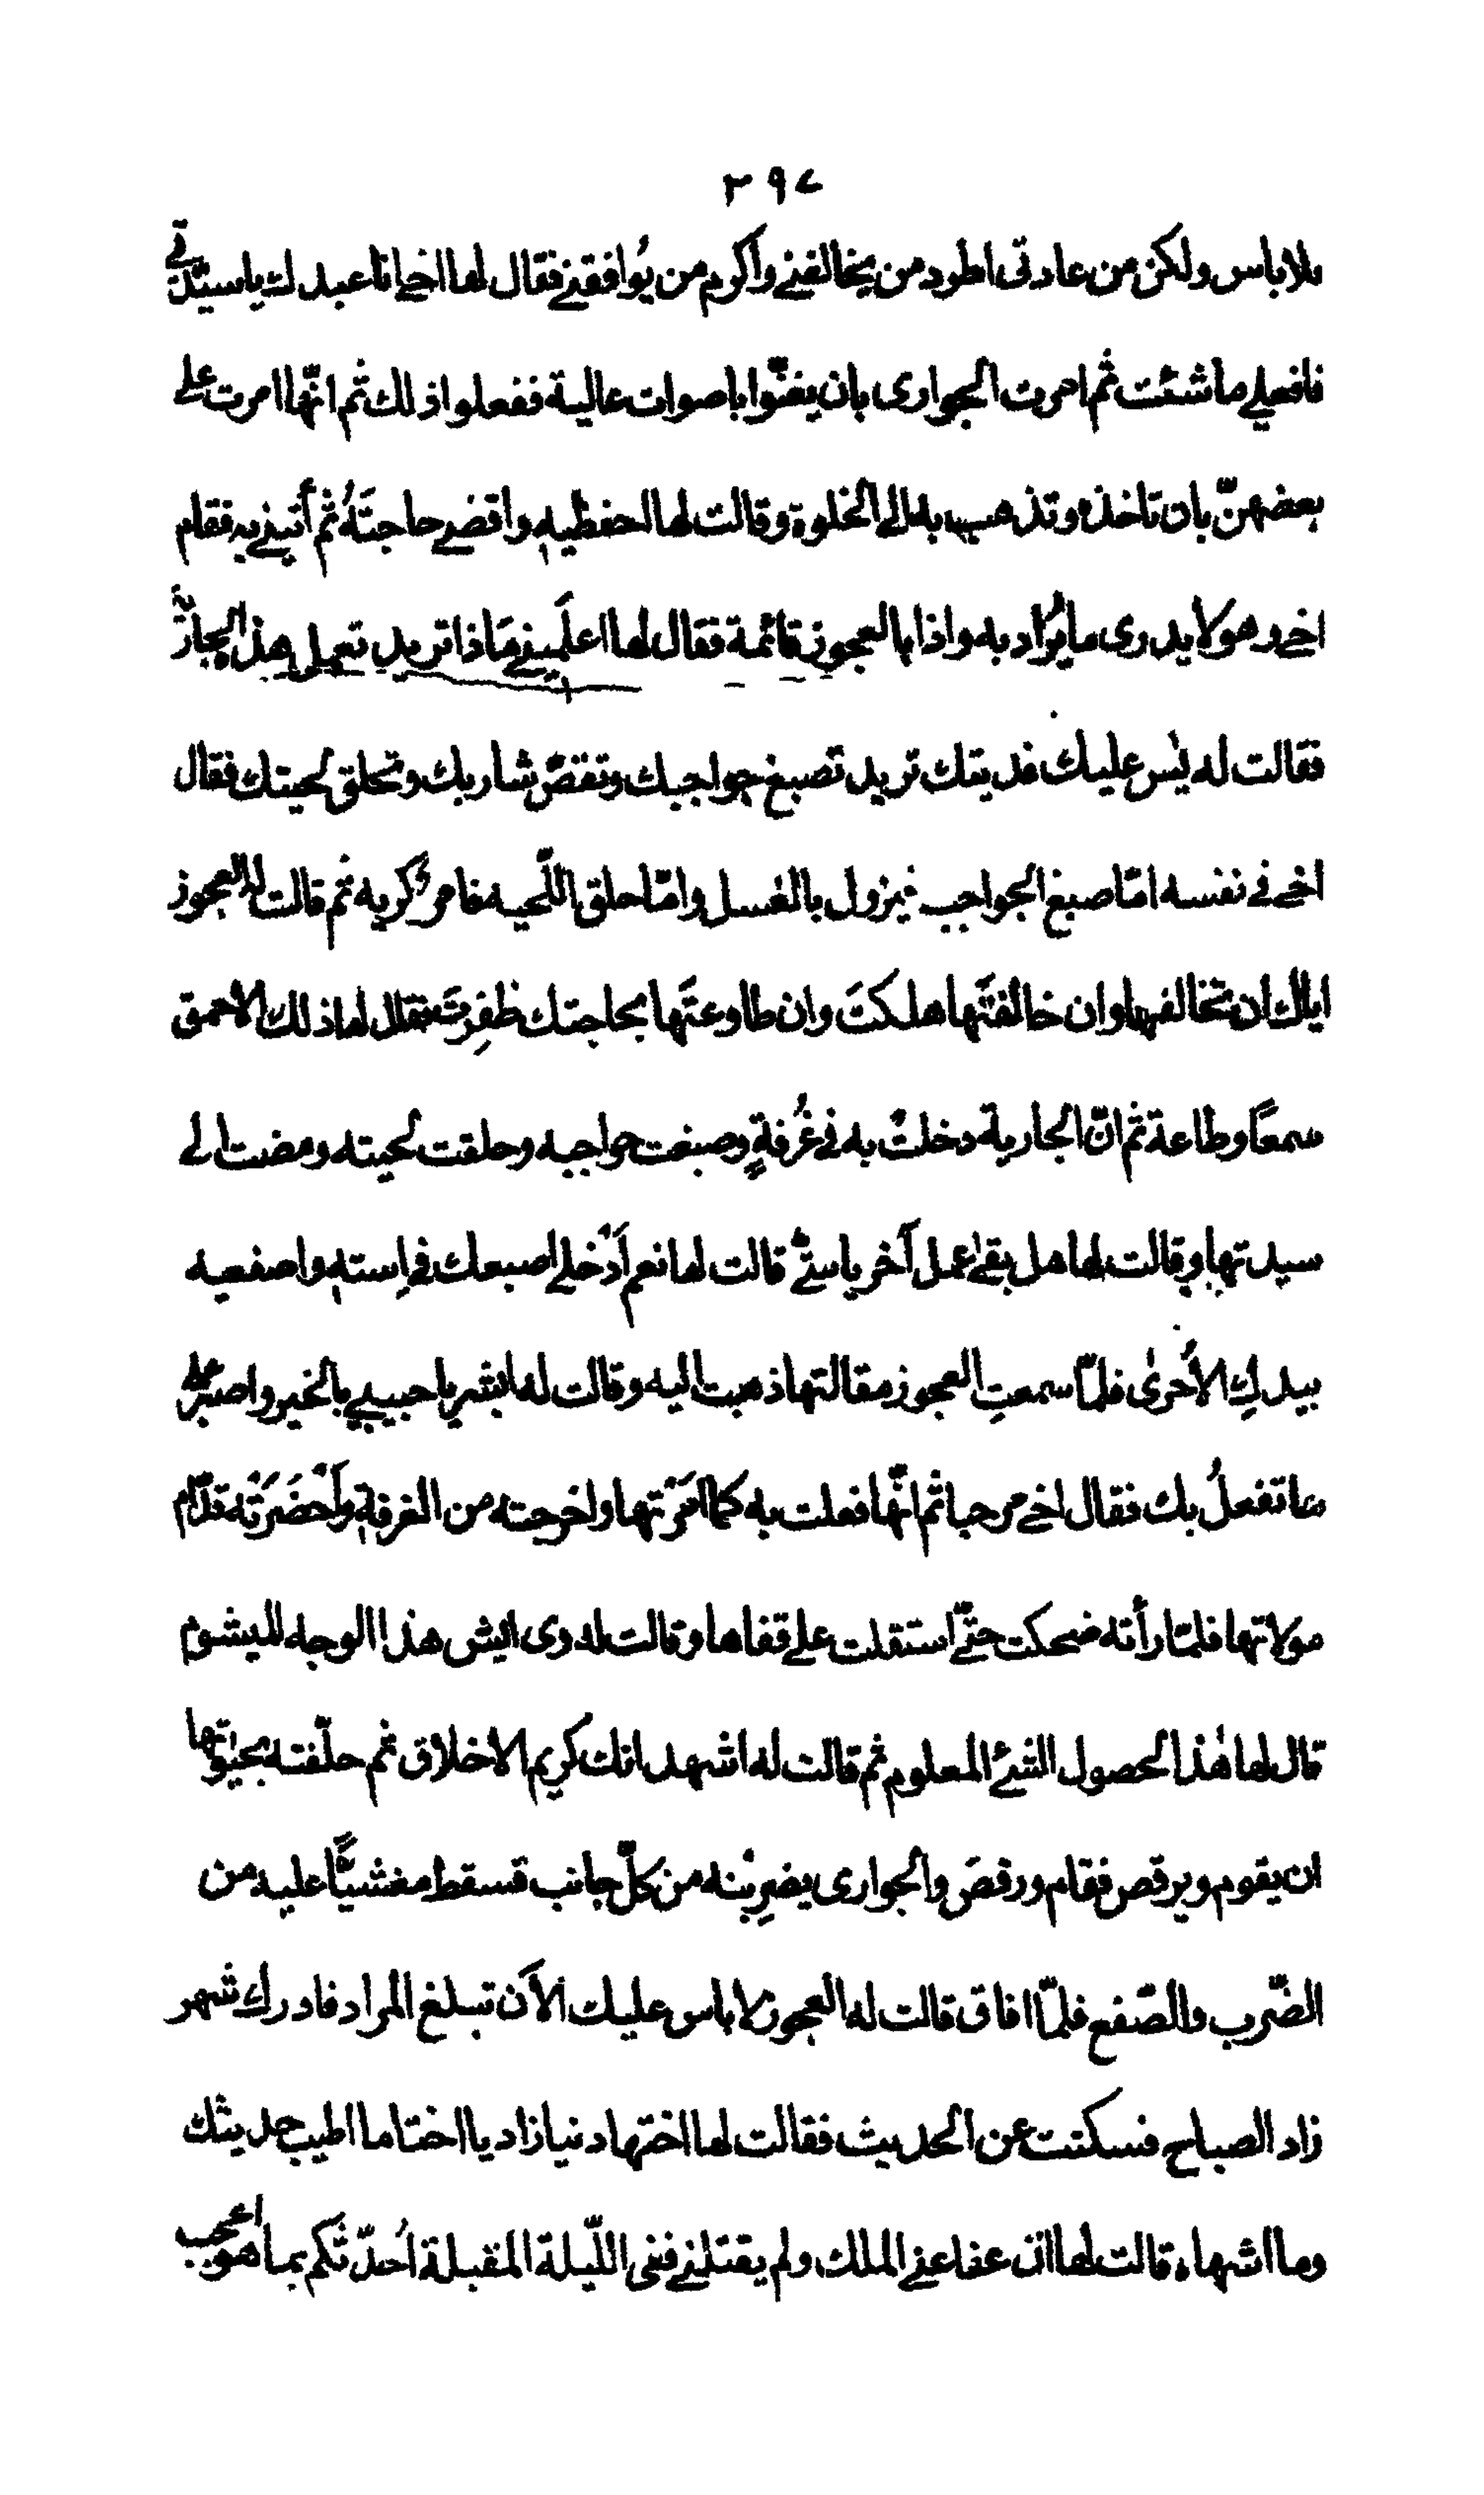 ٣٩٤
بلاباس ولكن من عادتى اطرد من يخالفنے واكرم من يُوافقنے فقال لها اخے انا عبدك ياستّے
فافعلے ماشئت ثم امرت الجوارى بان يغنّوا باصوات عالية ففعلوا ذلك ثم انّها امرت علے
بعضهنّ بان تاخذه وتذهب به الى الخلوة وقالت لها احفظيه واقضے حاجتَهُ ثم أتينے به فقام
اخے وهو لا يدرى مايُرَاد به واذا بالعجوز قائمة فقال لها اعلَمينے مَاذا تريد تعمل هذه الجارية
فقالت له ليس عليك فديتك تريد تصبغ حواجبك وتقصّ شاربك وتحلق لحيتك فقال
اخے فے نفسه امّا صبغ الحواجب فيزول بالغسل وامّا حلق اللّحيه فامر كريه ثم قالت له العجوز
اياك ان تخالفها وان خالفتَها هلكتَ وان طاوعتَها بحاجتك ظفِرتَ فقال لها ذلك الاحمق
سمعًا وطاعة ثم انّ الجارية دخلتْ به فے غُرفةٍ وصبغت حواجبه وحلقت لحيته ومضت الے
سيدتها وقالت لها هل بقے عمل آخر ياستّے قالت لها نعم أدخلے اصبعك فے استه واصفعيه
بيدكِ الأخرىٰ فلمّا سمعتِ العجوز مقالتها ذهبت اليه وقالت له ابشر ياحبيبے بالخير واصبر علے
ماتفعلُ بك فقال اخے مرحبا ثم انّها فعلت به كما امَرَتها واخرجته من الغرفة وأحضَرَته قدّام
مولاتها فلمّا رأته ضحكت حتّے استقلت علے قفاها وقالت له دى ايش هذا الوجه الميشوم
قال لها هٰذا لحصول الشئ المعلوم ثم قالت له اشهد انك كريم الاخلاق ثم حلّفته بحيٰوتها
ان يقوم ويرقص فقام ورقصَ والجوارى يضربْنه من كلّ جانب فسقط مغشيًّا عليه من
الضّرب والصّفع فلمّا افاق قالت له العجوز لاباس عليك الآن تبلغ المراد فادرك شهر
زاد الصباح فسكتت عن الحديث فقالت لها اختها دنيازاد يا اختا ما اطيب حديثك
وما اشهاه قالت لها ان عفا عنے الملك ولم يقتلنے ففى اللّيلة المقبلة اُحدّثكم بما هو اعجب